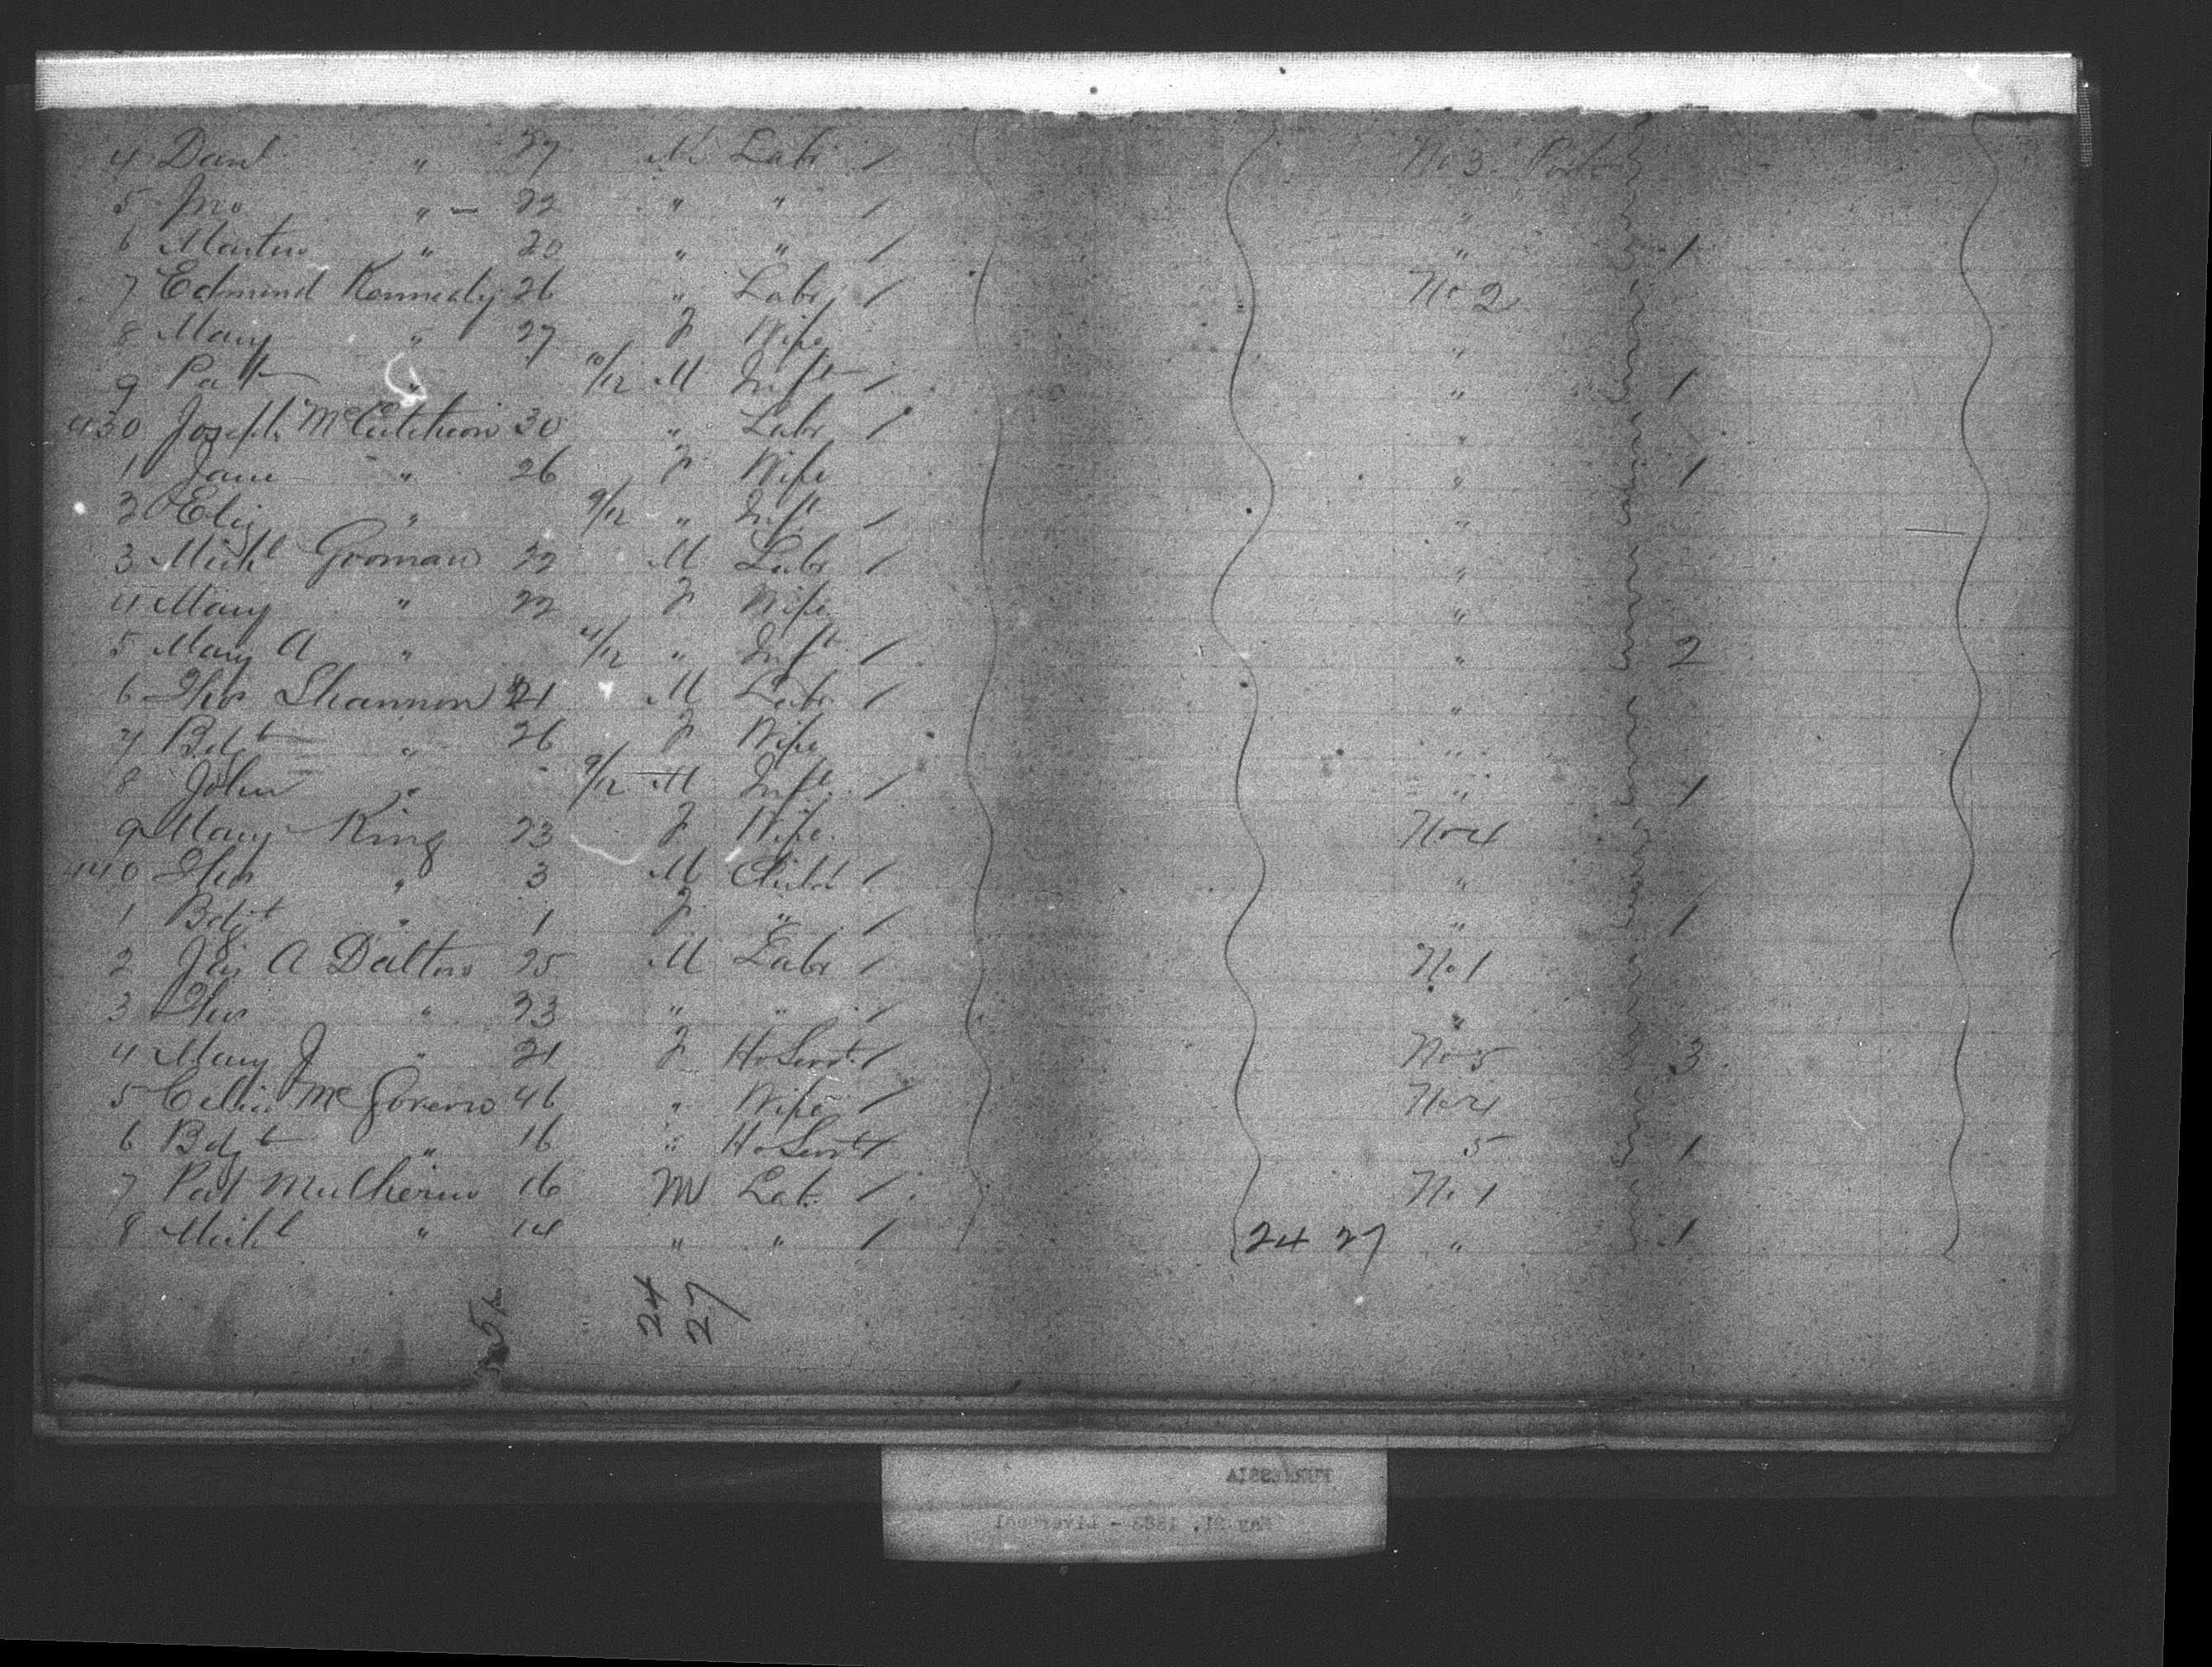 4 Danl " 27 M Labr / No 3 Port
5 Jno " — 22 " " / "
6 Martin " 20 " " / " 1
7 Edmund Kennedy 26 " Labr / No 2
8 Mary " 27 F Wife "
9 Patt " 10/12 M Inft / " 1
430 Joseph McCutcheon 30 " Labr / "
1 Jane " 26 F Wife " 1
2 Eliz " 9/12 " Inft / "
3 Michl Grornan 22 M Labr / "
4 Mary " 22 F Wife "
5 Mary A " 4/12 " Inft / " 2
6 Thos Shannon 21 M Labr / "
7 Bdgt " 26 F Wife "
8 John " 9/12 M Inft / " 1
9 Mary King 23 F Wife No 4
440 Thos " 3 M Child / "
1 Bdgt " 1 F " / " 1
2 A Dalton 25 M Labr / No 1
3 Thos " 23 " " / "
4 Mary J " 21 F Ho Servt / No 5 3
5 Celia McGovern 46 " Wife / No 4
6 Bdgt " 16 " Ho Servt / 5 1
7 Pat Mulherin 16 M Lab / No 1
8 Michl " 14 " " / 24 27 " 1
24
27
FURNESSIA
May 21, 1883 - Liverpool